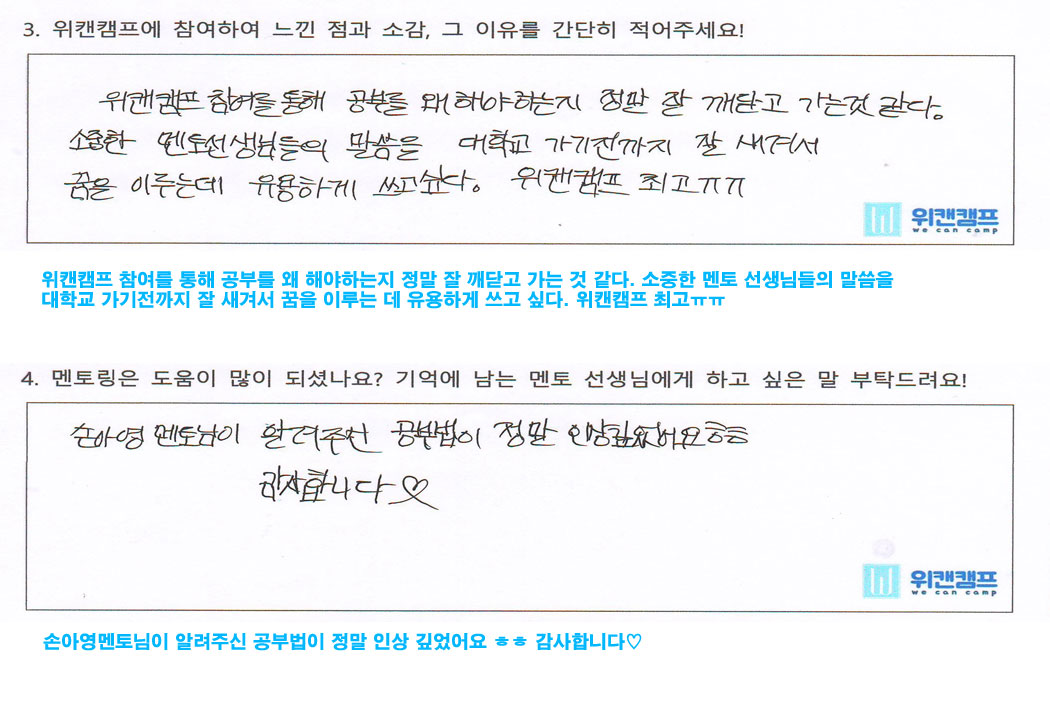 3. 위캔캠프에 참여하여 느낀 점과 소감, 그 이유를 간단히 적어주세요!
위캔캠프 참여를 통해 공부를 왜 해야하는지 정말 잘 깨닫고 가는것 같다.
소중한 멘토선생님들의 말씀을 대학교 가기전까지 잘 새겨서
꿈을 이루는데 유용하게 쓰고싶다. 위캔캠프 최고ㅠㅠ
위캔캠프
we can camp
위캔캠프 참여를 통해 공부를 왜 해야하는지 정말 잘 깨닫고 가는 것 같다. 소중한 멘토 선생님들의 말씀을
대학교 가기전까지 잘 새겨서 꿈을 이루는 데 유용하게 쓰고 싶다. 위캔캠프 최고ㅠㅠ
4. 멘토링은 도움이 많이 되셨나요? 기억에 남는 멘토 선생님에게 하고 싶은 말 부탁드려요!
손아영 멘토님이 알려주신 공부법이 정말 인상깊었어요ㅎㅎ
감사합니다♡
위캔캠프
we can camp
손아영멘토님이 알려주신 공부법이 정말 인상 깊었어요 ㅎㅎ 감사합니다♡